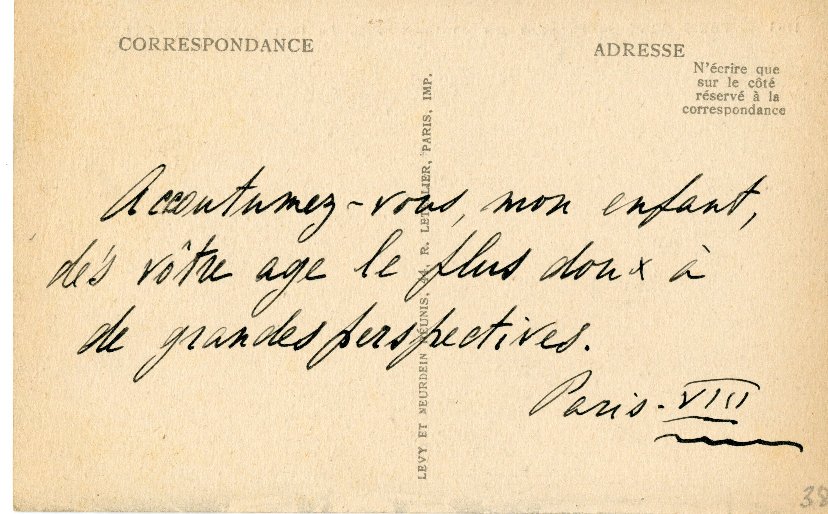 CORRESPONDANCE
ADRESSE
N'écrire que
sur le côté
réservé à la
correspondance
LEVY ET NEURDEIN RÉUNIS, 44, R. LETELLIER, PARIS, IMP.
Accoutumez-vous, mon enfant,
dés vôtre age le plus doux à
de grandes perspectives.
Paris-VIII
38